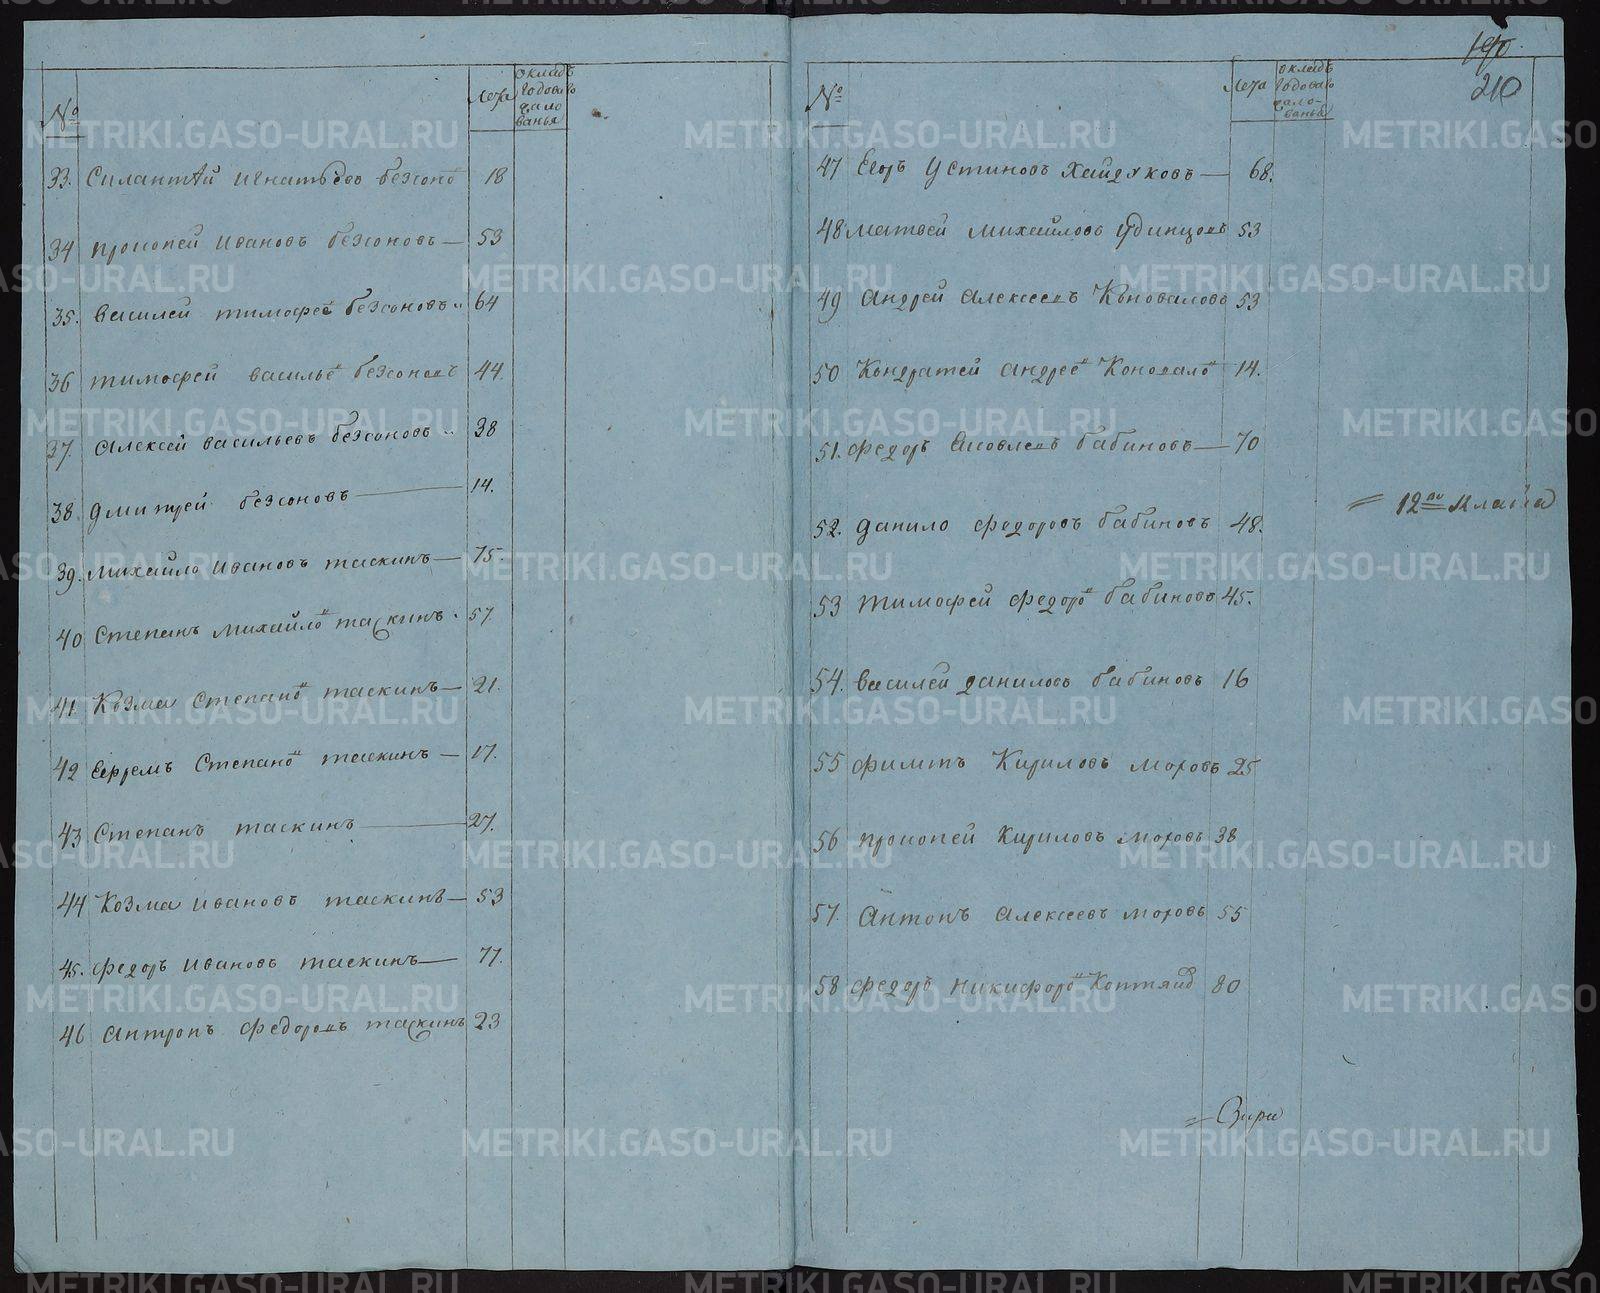 № Лета окладъ годоваго жалованья
33. Силантѣй игнатьевъ безсоно̃ 18
34 прокопей ивановъ безсоновъ — 53
35. василей тимофее̃ безсоновъ 64
36 тимофей василье̃ безсоновъ 44.
37. алексей васильевъ безсоновъ 38
38. дмитрей безсоновъ — 14.
39. михайло ивановъ таскинъ — 75.
40 степанъ михайло̃ таскинъ. 57
41 Козма степано̃ таскинъ — 21.
42 ефремъ степано̃ таскинъ — 17.
43 степанъ таскинъ — 27.
44 Козма ивановъ таскинъ — 53
45. федоръ ивановъ таскинъ — 77.
46 антропъ федоровъ таскинъ 23
210
№ Лета окладъ годоваго жалованья
47 егоръ устиновъ хайдуковъ — 68.
48 матвей михайловъ удинцовъ 53
49 андрей алексеевъ Коноваловъ 53
50 Кондратей андрее̃ Коновало̃ 14.
51. федоръ яковлевъ бабиновъ — 70
= 12го класса
52. данило федоровъ бабиновъ 48.
53 тимофей федоро̃ бабиновъ 45.
54. василей даниловъ бабиновъ 16
55 филипъ Кириловъ моховъ 25
56 прокопей Кириловъ моховъ 38
57 антонъ алексеевъ моховъ 55
58 федоръ никифоро̃ 80
METRIKI.GASO-URAL.RU